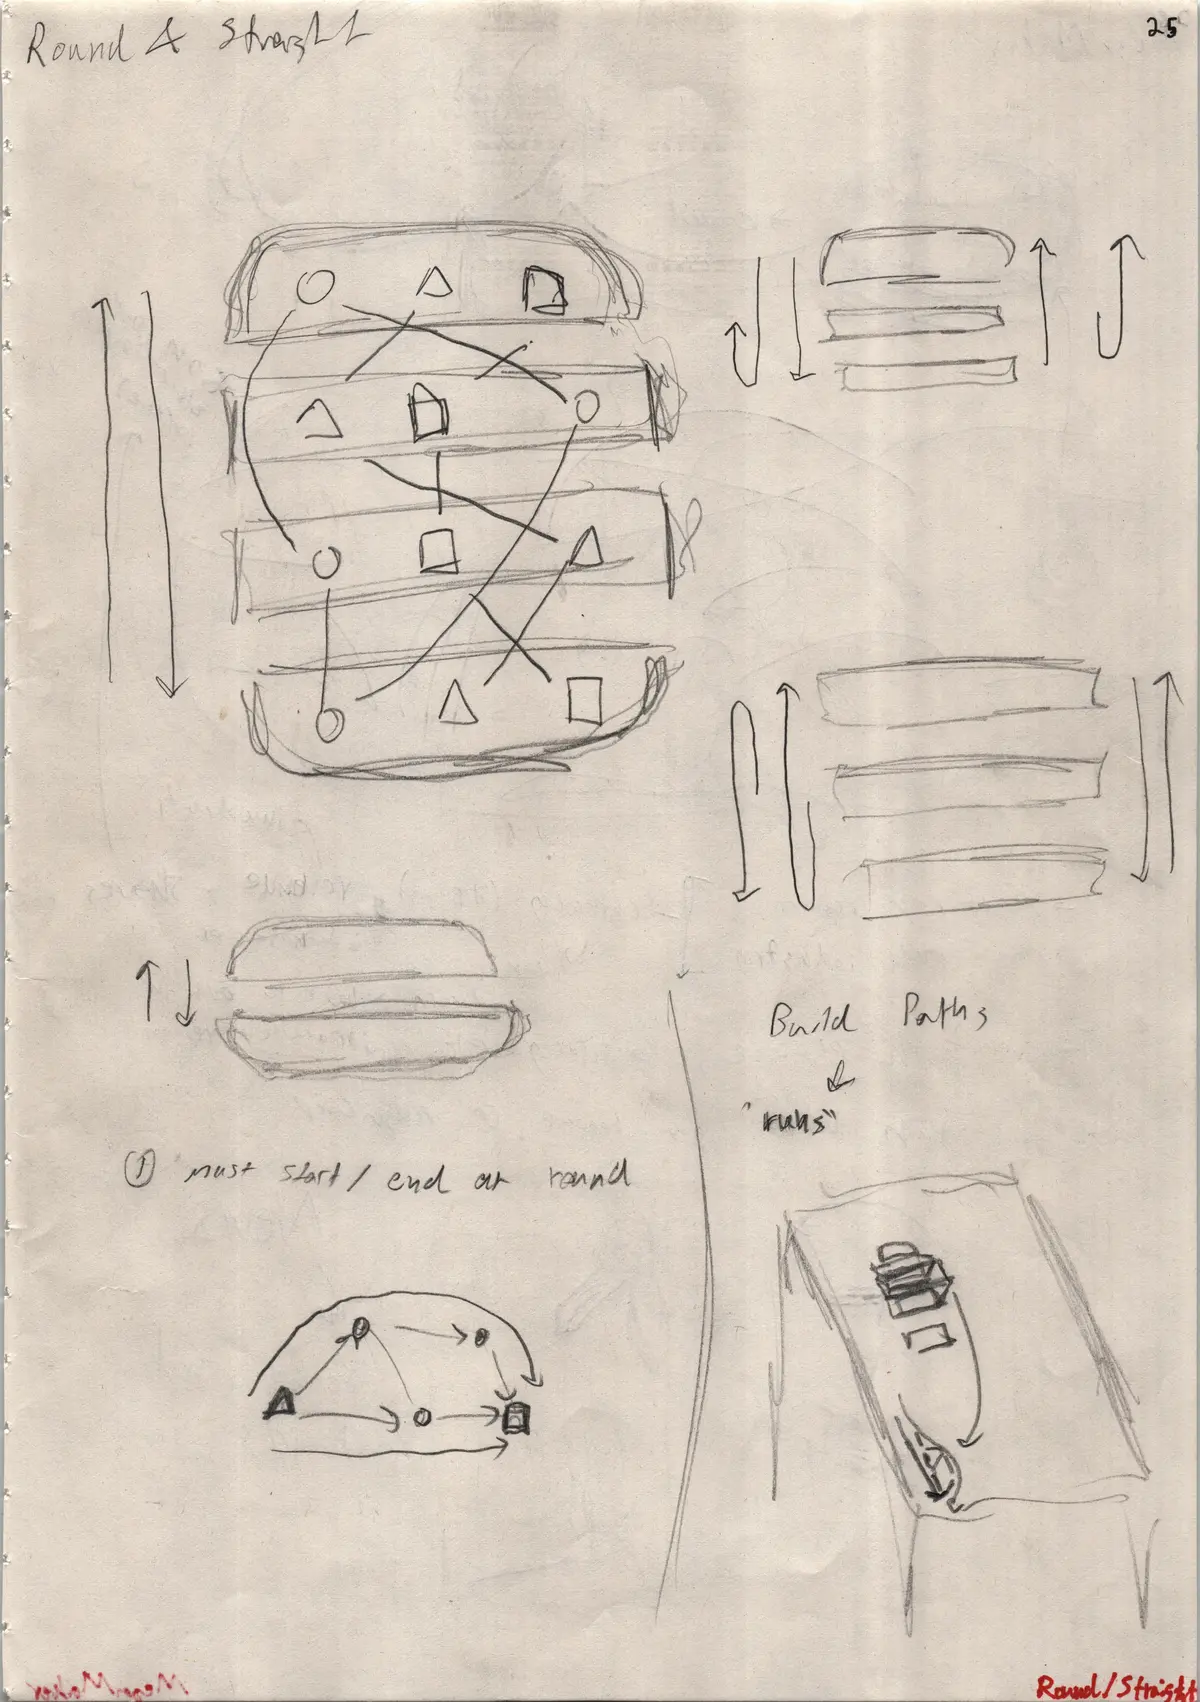 Round & Straight
25
Build Paths
"runs"
① must start / end at round
Round / Straight